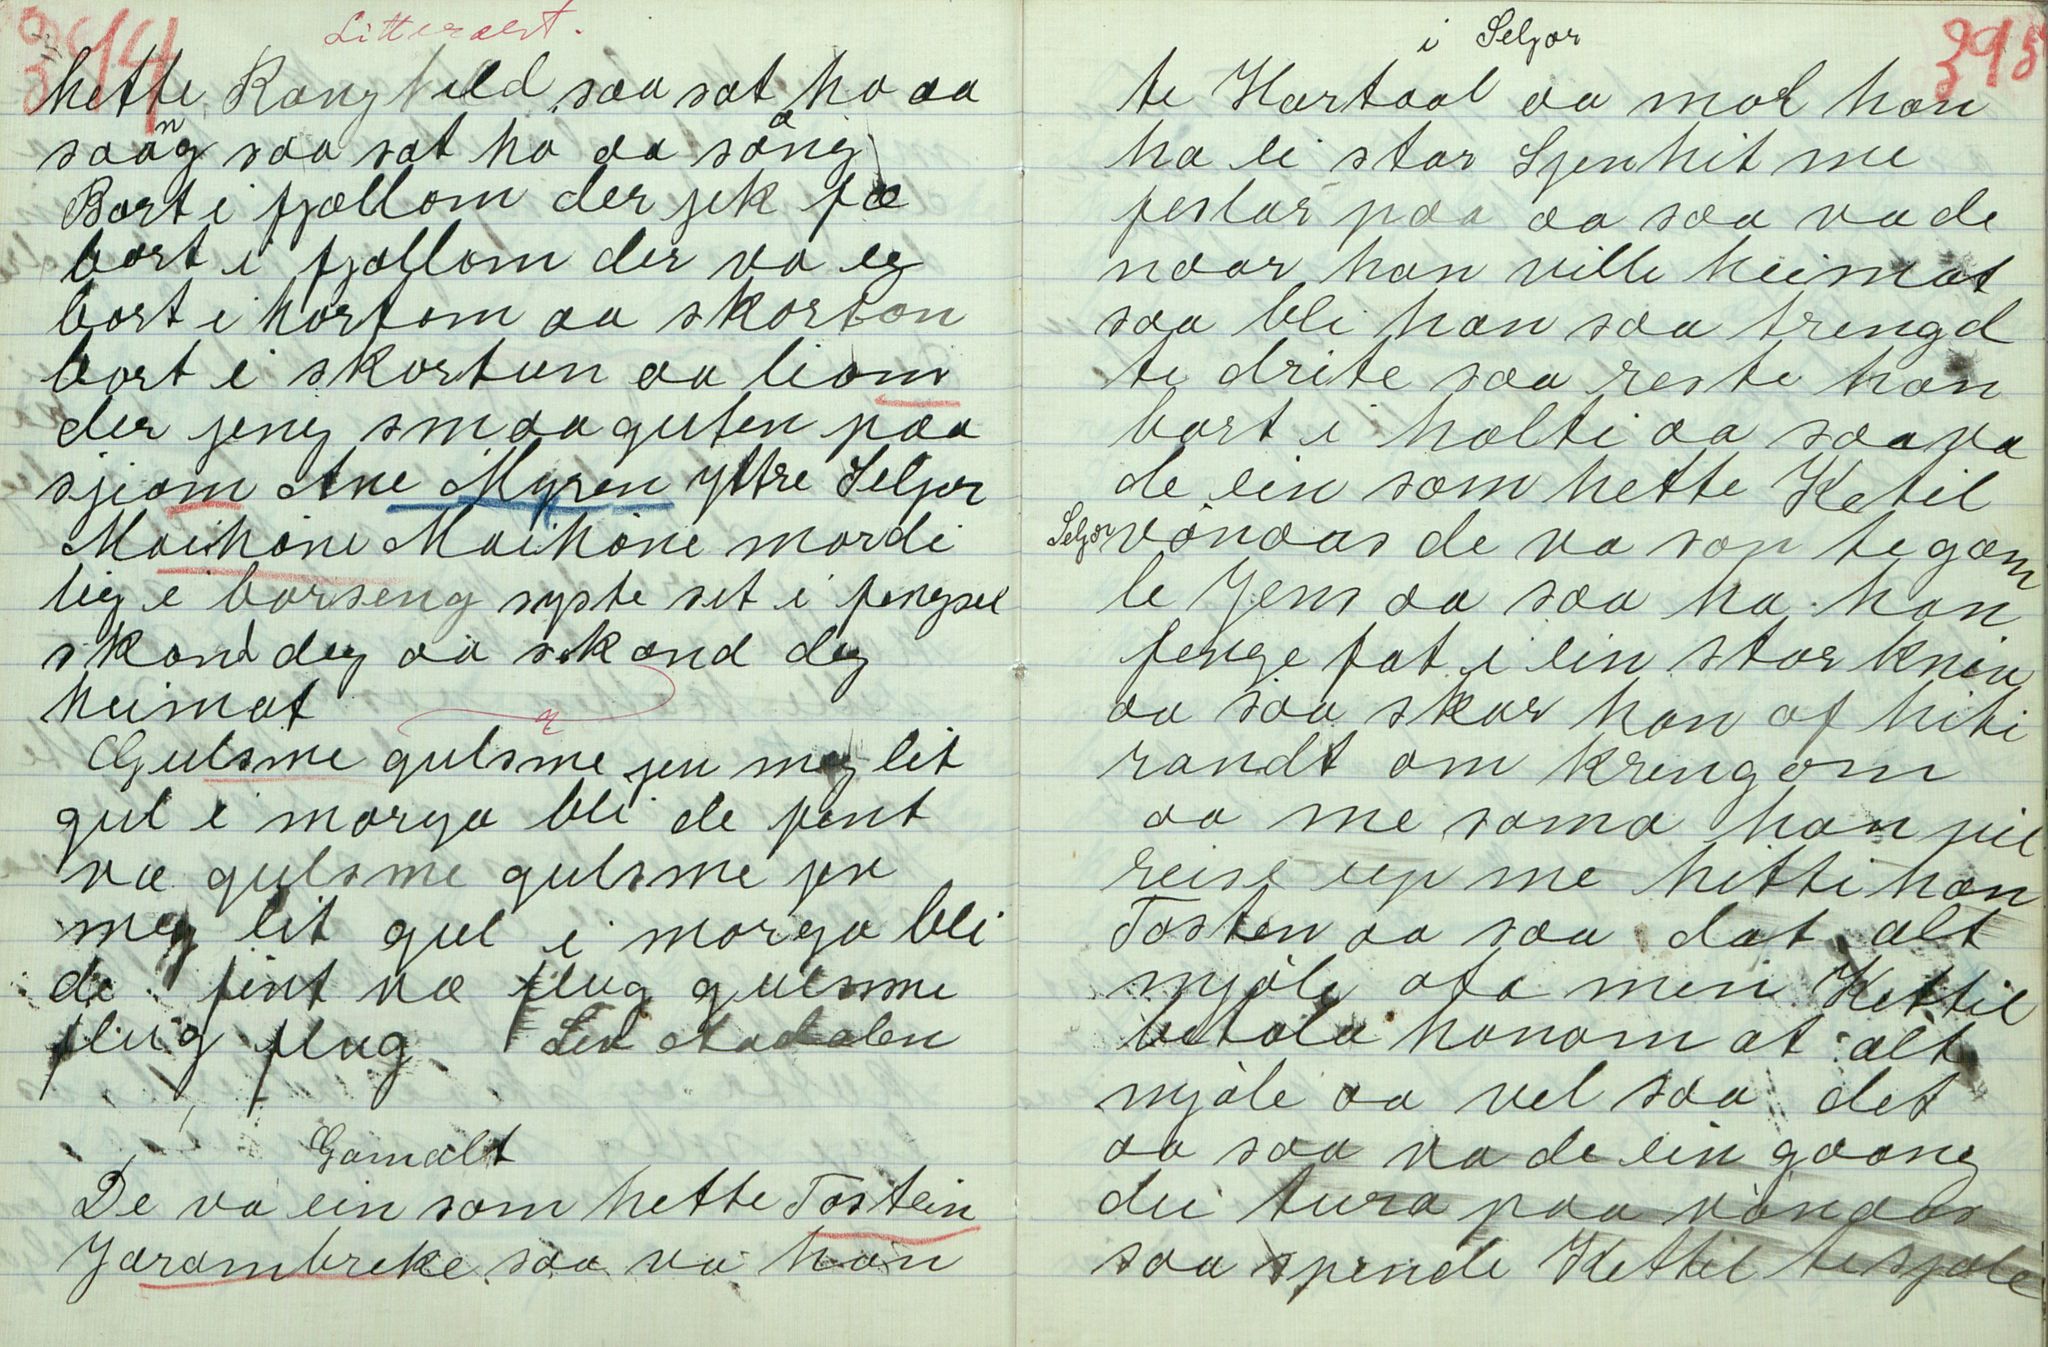 394
Litterært.
hette Ranghild saa sat ho aa
saang saa sat ho aa saang
Bort i fjællom der jek fæ
bort i fjællom der va eg
bort i hortom aa skorton
bort i skorton aa liom
der jeng smaaguten paa
sjiom Ane Myren Yttre Seljor
Maihøne Maihøne mordi
lig i barseng syste sit i fengsel
skond deg aa skond deg
heimat
Gulsme gulsme jev meg lit
gul i morga bli de pent
væ gulsme gulsme jev
meg lit gul i morga bli
de fint væ flug gulsme
flug flug Liv Aadalen
Gamalt
De va ein som hette Tostein
Jarambreke saa va han
395
i Seljor
te Hartaal aa mol han
ha ei stor Sjenhit me
peslar paa aa saa va de
naar han ville heimat
saa bli han saa trengd
te drite saa reste han
bort i holti aa saa va
de ein som hette Ketil
Seljor vønaas de va son te gam
le Jens aa saa ha han
fenge fat i ein stor kniv
aa saa skar han af hiti
randt om kringom
aa me soma han fil
reise up me hitti han
Tosten aa saa dat alt
mjøle ata men Kettil
betala honom at alt
mjøle aa vel saa det
aa saa va de ein gaang
dei tura paa vønaas
saa spende Kettil te sjøle